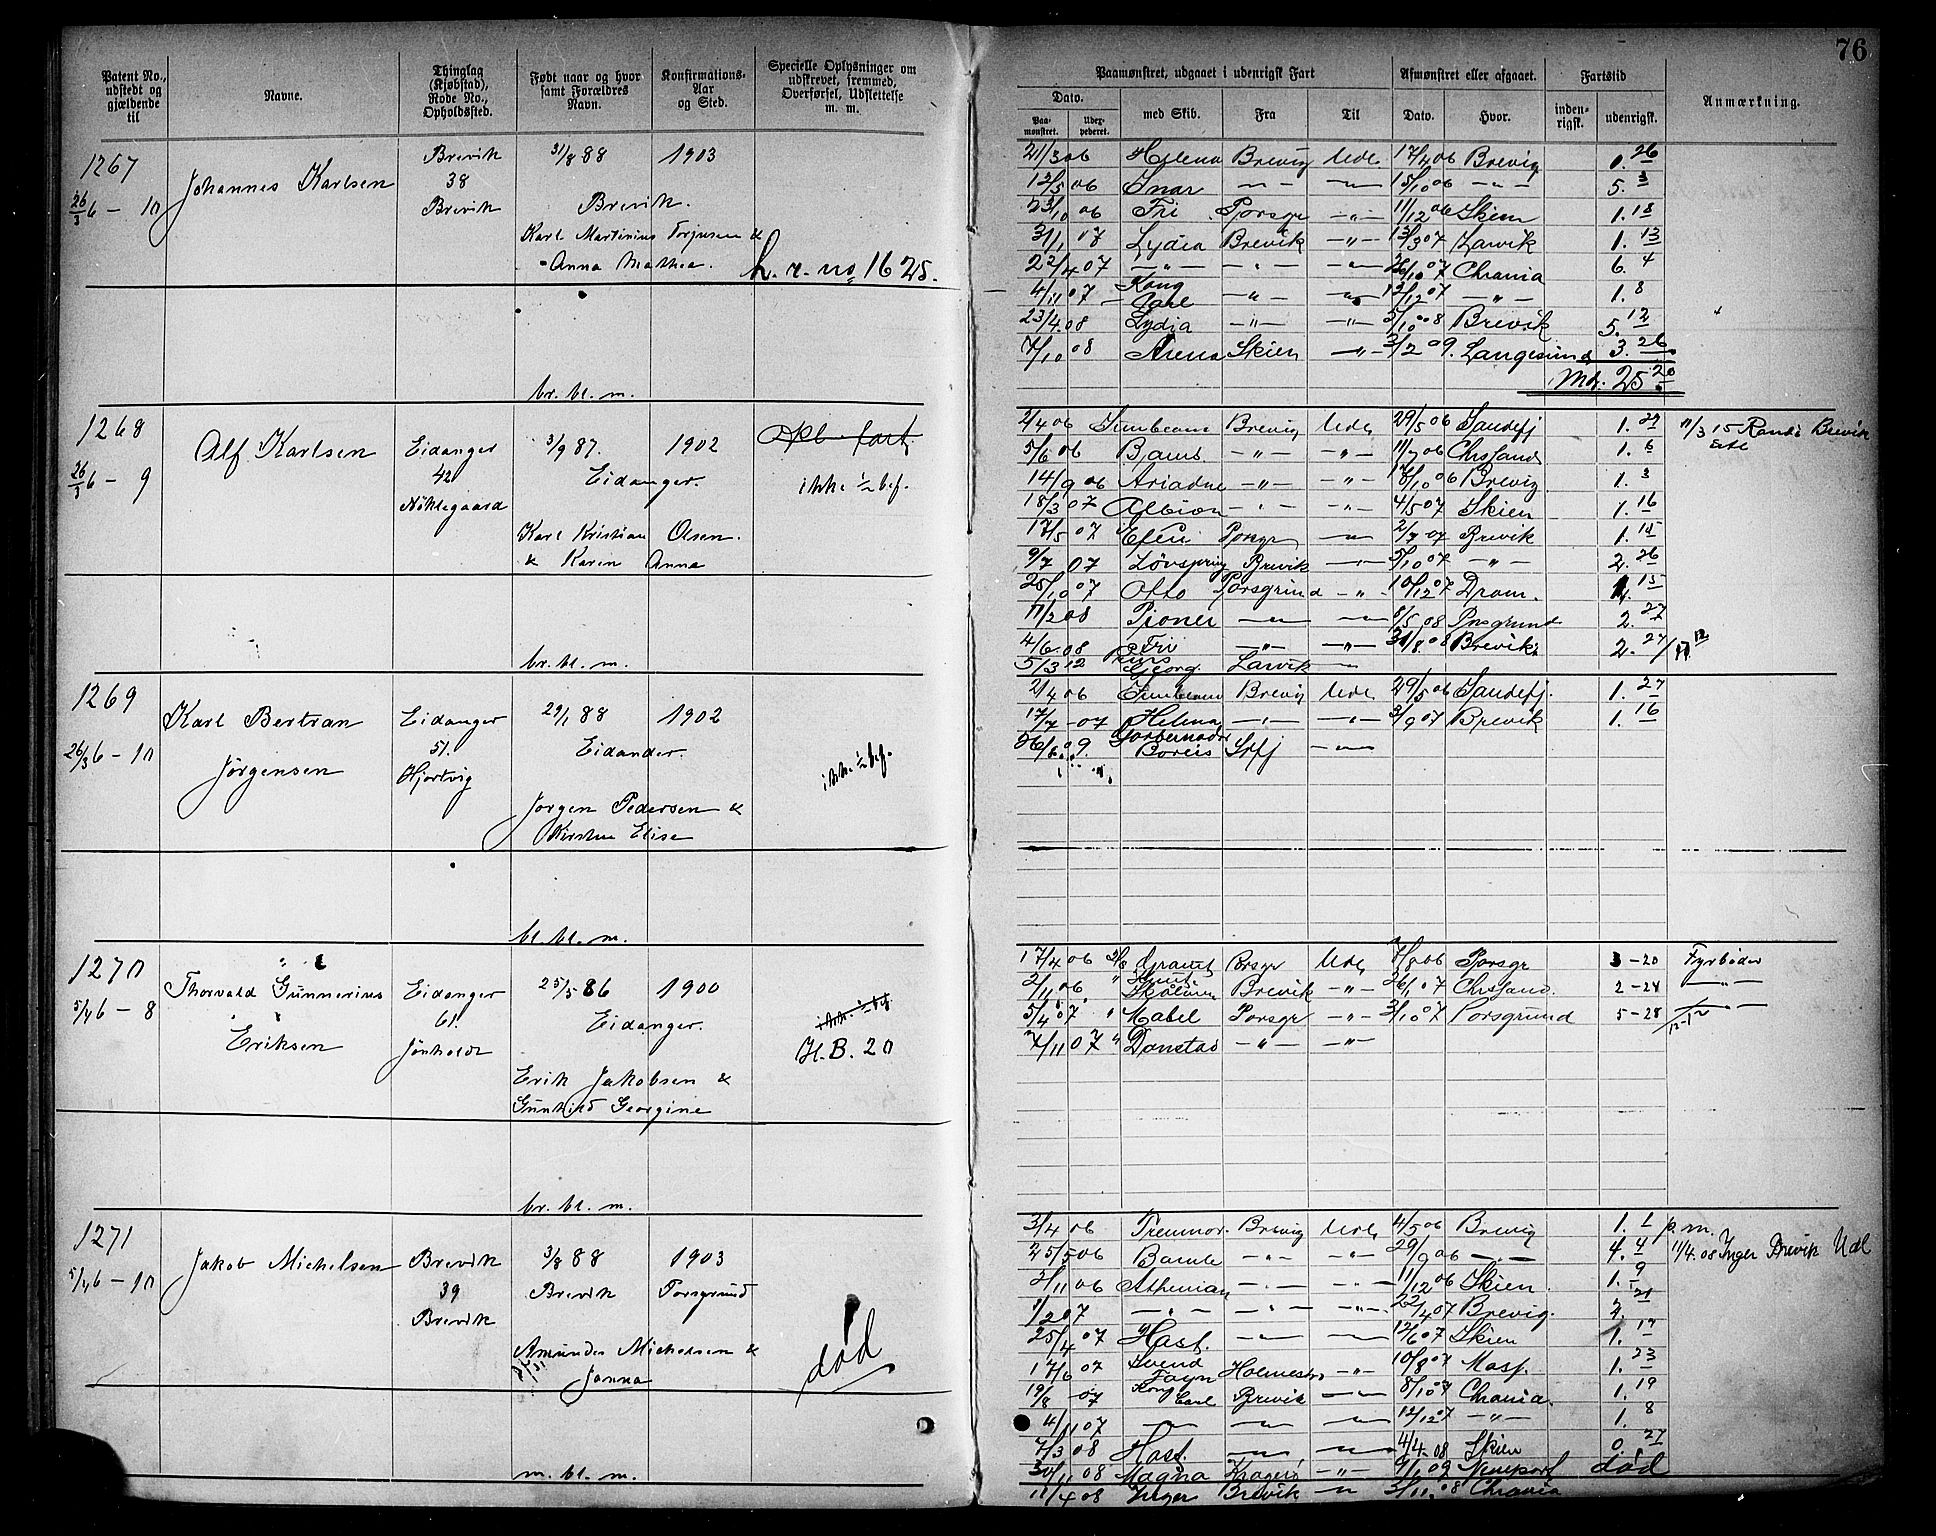 76
Patent No., udstedt og gjældende til
Navne.
Thinglag (Kjøbstad), Rode No., Opholdssted.
Født naar og hvor samt Forældres Navn.
Konfirmations-Aar og Sted.
Specielle Oplysninger om udskrevet, fremmed, Overførsel, Udslettelse m. m.
Paamønstret, udgaaet i udenrigsk Fart
Afmønstret eller afgaaet.
Fartstid
Anmærkning.
Dato.
med Skib.
Fra
Til
Dato.
Hvor.
inden-rigsk.
udenrigsk.
Paa-mønstret.
1267
26/3 6 - 10
Johannes Karlsen
Brevik
38
Brevik
31/8 88
1903
Brevik.
Karl Martinius Torjusen &
Anna Mathea.
h. r. no 1625.
br. bl. m.
21/3 06 Helena Brevig Udl. 17/4 06 Brevig 1. 26
12/5 06 Snar - " - - " - 15/10 06 - " - 5. 3
23/10 06 Fri Porsgr - " - 11/12 06 Skien 1. 18
31/1 07 Lydia Brevik - " - 13/3 07 Larvik 1. 13
22/4 07 - " - - " - - " - 26/10 07 Chrania 6. 4
4/11 07 Kong Carl - " - - " - 12/12 07 - " - 1. 8
23/4 08 Lydia - " - - " - 5/10 08 Brevik 5. 12
7/10 08 Arena Skien - " - 3/2 09. Langesund 3. 26
Md. 25. 20
1268
26/3 6 - 9
Alf Karlsen
Eidanger
42
Nöklegaard
3/9 87.
1902
Eidanger.
Karl Kristian Olsen.
& Karen Anna
ikke ½ bef.
br. bl. m.
2/4 06 Sunbeam Brevig Udl. 29/5 06 Sandefj 1. 27
5/6 06 - " - - " - 11/7 06 Chrsand 1. 6
14/9 06 Ariadne - " - - " - 17/10 06 Brevig 1. 3
18/3 07 Albion - " - - " - 4/5 07 Skien 1. 16
17/5 07 Porsgr - " - 2/7 07 Brevik 1. 15
9/7 07 Løvspring Brevik - " - 5/10 07 - " - 2. 26
25/10 07 Otto Porsgrund - " - 10/12 07 Dram. 1. 15
11/2 08 Pioner - " - - " - 8/5 08 Prsgrund 2. 27
4/6 08 Fri - " - - " - 31/8 08 Brevik 2. 27
5/3 12 Prins Georg. Larvik -
11/3 15 Brevik
1269
26/3 6 - 10
Karl Bertran
Jörgensen
Eidanger
51.
Hjortvig
29/1 88
1902
Eidander.
Jorgen Pedersen &
Kirstine Elise
ikke ½ bef.
bl. bl. m.
2/4 06 Sunbeam Brevig Udl. 29/5 06 Sandefj. 1. 27
17/7 - 07 Helena - " - - " - 3/9 07 Brevik 1. 16
Boreis Sffj - " -
1270
5/4 6 - 8
Thorvald Gunnerius
Eriksen
Eidanger
61.
Jönholdt
25/5 86
1900
Eidanger.
Erik Jakobsen &
Gunhild Georgine
H. B. 20
br. bl. m.
17/4 06 Porsgr Udl. 7/8 06 Porsgr 3 - 20 Fyrbøder
2/11 06 Brevik - " - 26/1 07 Chrsand. 2 - 24 - " -
5/4 07 Mabel Porsgr - " - 3/10 07 Porsgrund 5 - 28
7/11 07 Danstad - " - - " -
1271
5/4 6 - 10
Jakob Michelsen
Brevik
39
Brevik
3/8 88
1903
Brevik
Porsgrund
Amundes Michelsen &
Janna
død
m. bl. m.
3/4 06 Tremmor. Brevig Udl. 4/5 06 Brevig 1. 1 p. m.
25/5 06 Bamle - " - - " - 29/9 06 - " - 4. 4 11/4. 08 Inger Brevik Udl
2/11 06 Athenian - " - - " - 11/12 06 Skien. 1. 9
1/2 07 - " - - " - - " - 22/4 07 Brevig. 2. 21
25/4 07 Hast. - " - - " - 12/6 07 Skien 1. 17
17/6 07 Svend Foyn Holmestr - " - 10/8 07 Moss. 1. 23
19/8 - 07 Kong Carl Brevik - " - 8/10 07 Chrania. 1. 19
4/11 07 - " - - " - - " - 12/12 07 - " - 1. 8
7/3 08 Hast. - " - - " - 4/4 08 Skien 0. 27
30/11 08 Magna Kragerø - " - 9/1 09 Newport død
11/4 08 Inger Brevik - " - 3/11 08 Chrania